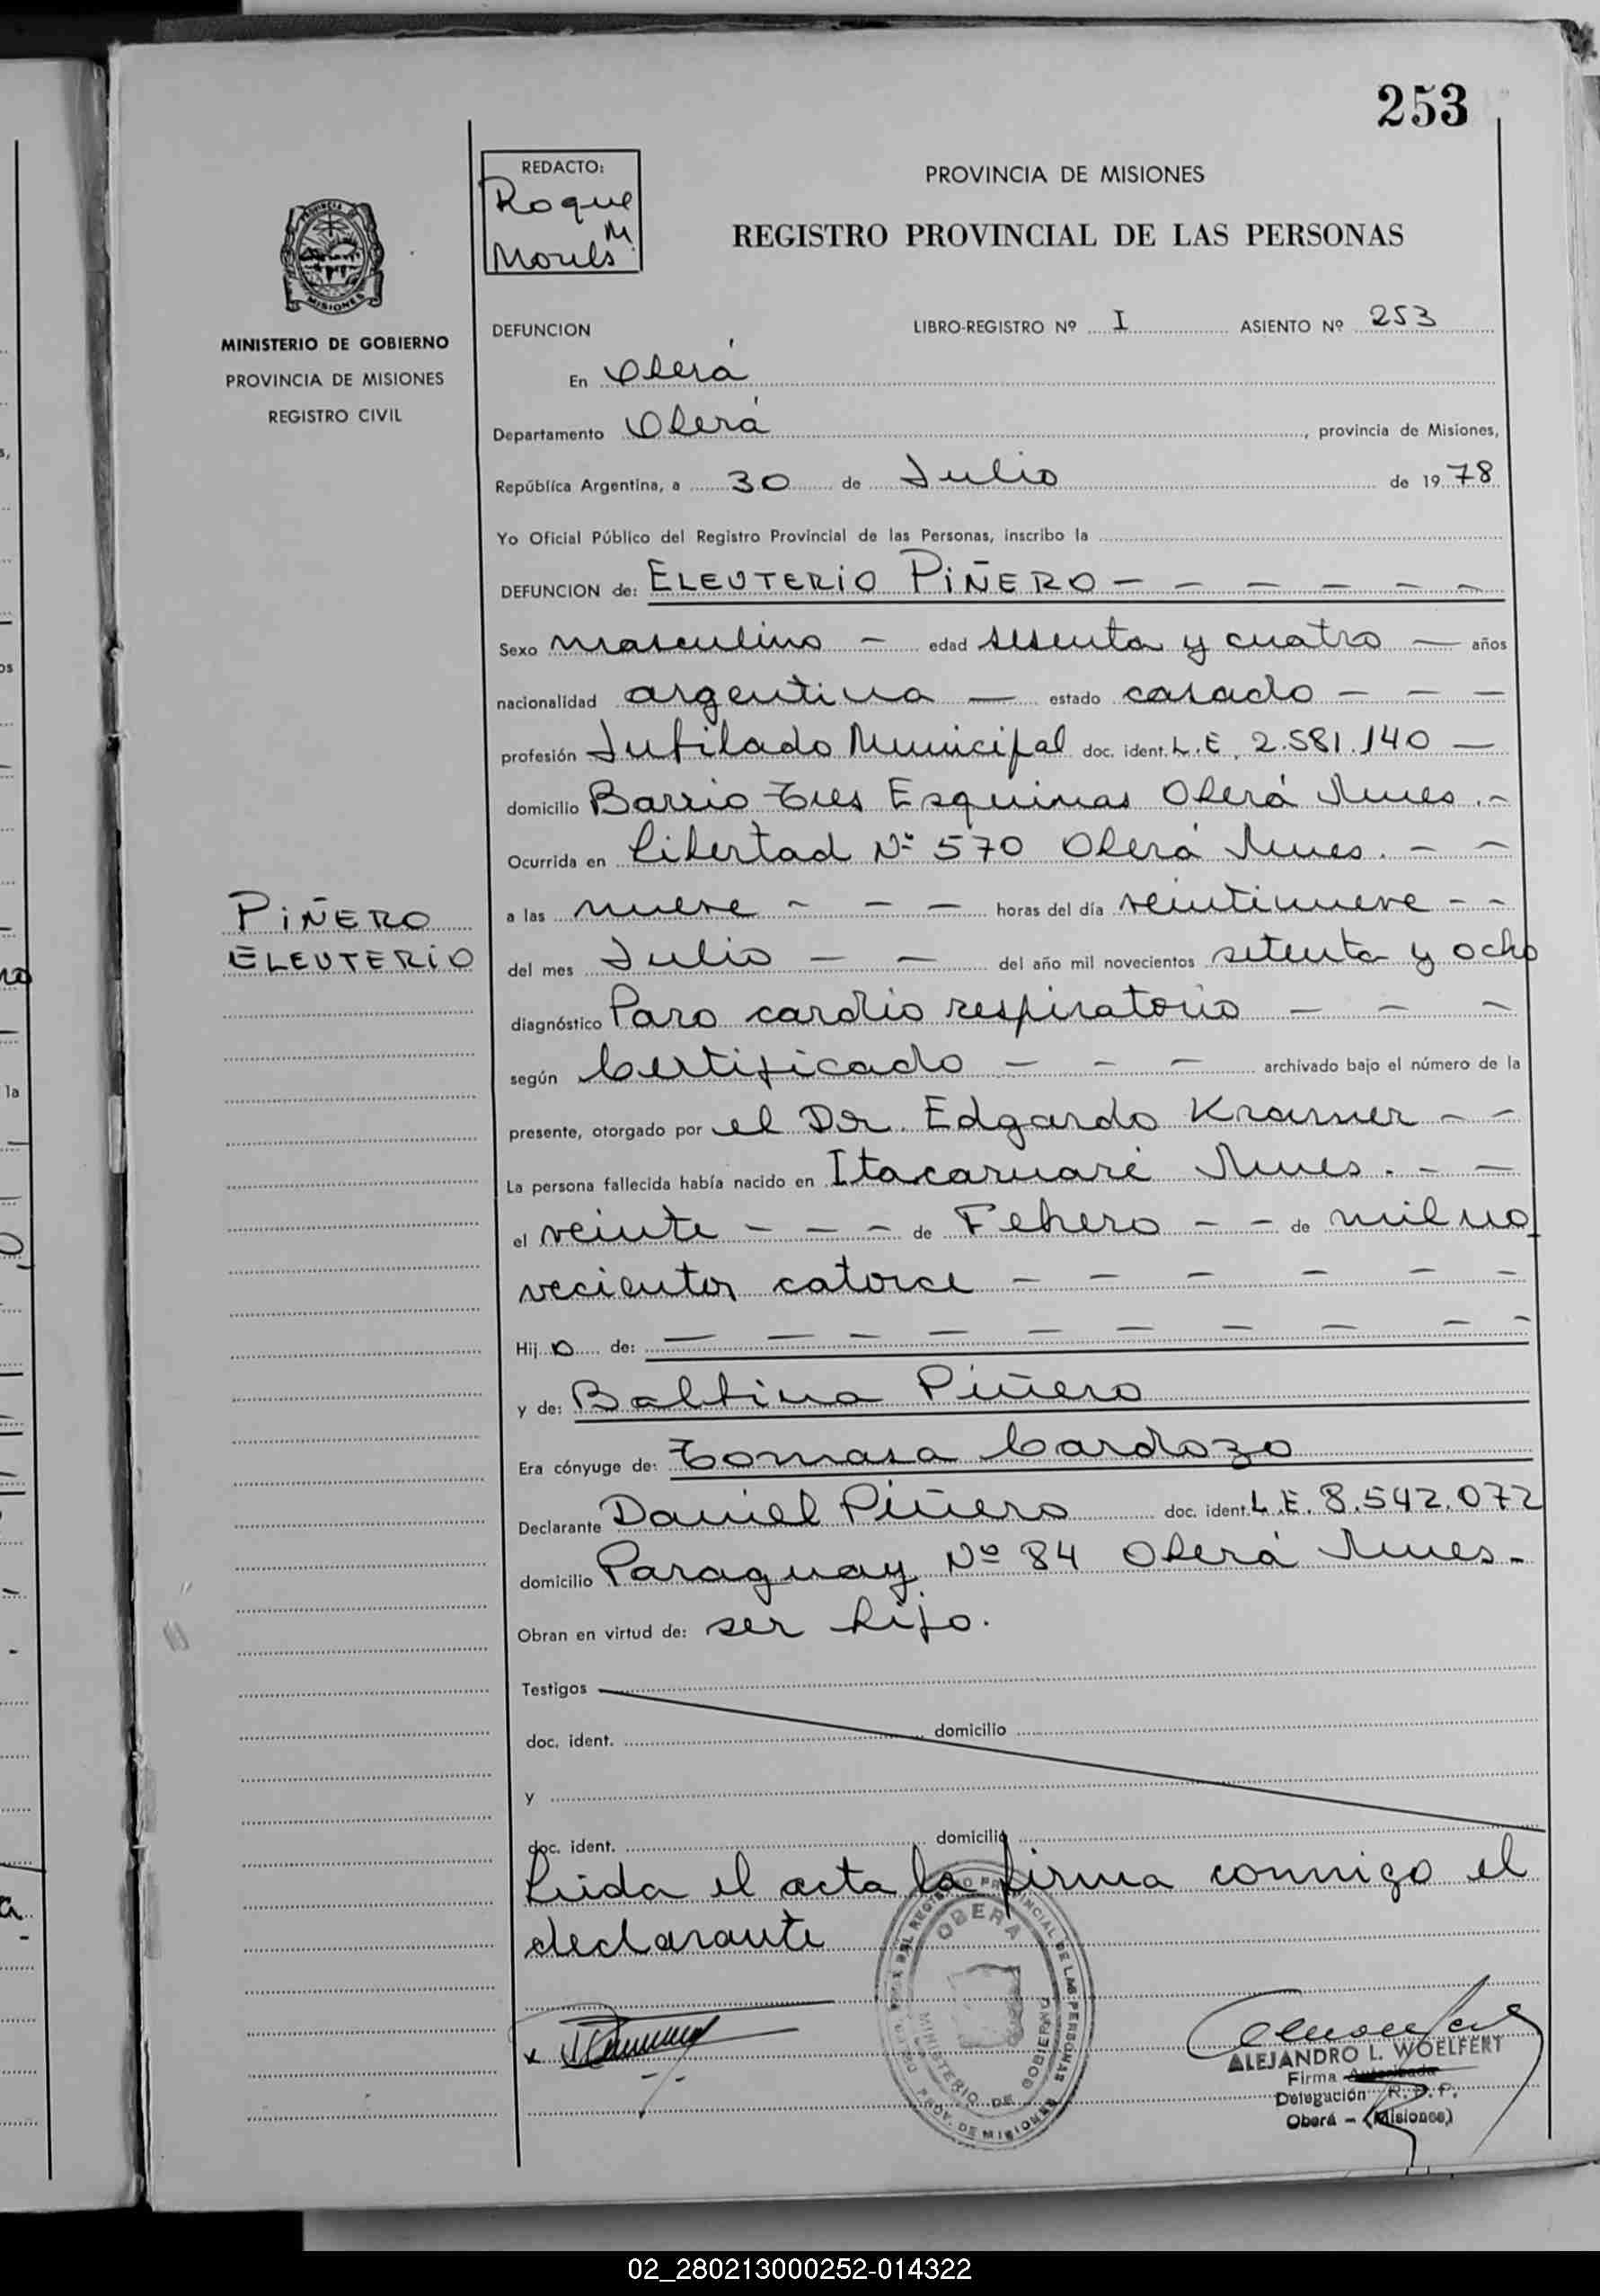 253
REDACTO:
Roque
M.
PROVINCIA DE MISIONES
REGISTRO PROVINCIAL DE LAS PERSONAS
PROVINCIA DE
MISIONES
MINISTERIO DE GOBIERNO
PROVINCIA DE MISIONES
REGISTRO CIVIL
DEFUNCION LIBRO-REGISTRO Nº I ASIENTO Nº 253
En Oberá
Departamento Oberá , provincia de Misiones,
República Argentina, a 30 de Julio de 1978
Yo Oficial Público del Registro Provincial de las Personas, inscribo la
DEFUNCION de: ELEUTERIO PIÑERO
Sexo masculino edad sesenta y cuatro años
nacionalidad argentina estado casado
profesión Jubilado Municipal doc. ident. L.E. 2.581.140
domicilio Barrio Tres Esquinas Oberá Mnes.
Ocurrida en Libertad Nº 570 Oberá Mnes.
a las nueve horas del día veintinueve
del mes Julio del año mil novecientos setenta y ocho
diagnóstico Paro cardio respiratorio
según Certificado archivado bajo el número de la
presente, otorgado por el Dr. Edgardo Kramer
La persona fallecida había nacido en Itacaruaré Mnes.
el veinte de Febrero de mil no
vecientos catorce
Hijo de:
y de: Balbina Piñero
Era cónyuge de: Tomasa Cardozo
Declarante Daniel Piñero doc. ident. L.E. 8.542.072
domicilio Paraguay Nº 84 Oberá Mnes.
Obran en virtud de: ser hijo.
Testigos
doc. ident. domicilio
y
doc. ident. domicilio
Leída el acta la firma conmigo el
declarante
PIÑERO
ELEUTERIO
REGISTRO PROVINCIAL DE LAS PERSONAS
OBERA
MINISTERIO DE GOBIERNO
PROV. DE MISIONES
ALEJANDRO L. WOELFERT
Firma Autorizada
Delegación R. P. P.
Oberá - (Misiones)
la
02_280213000252-014322